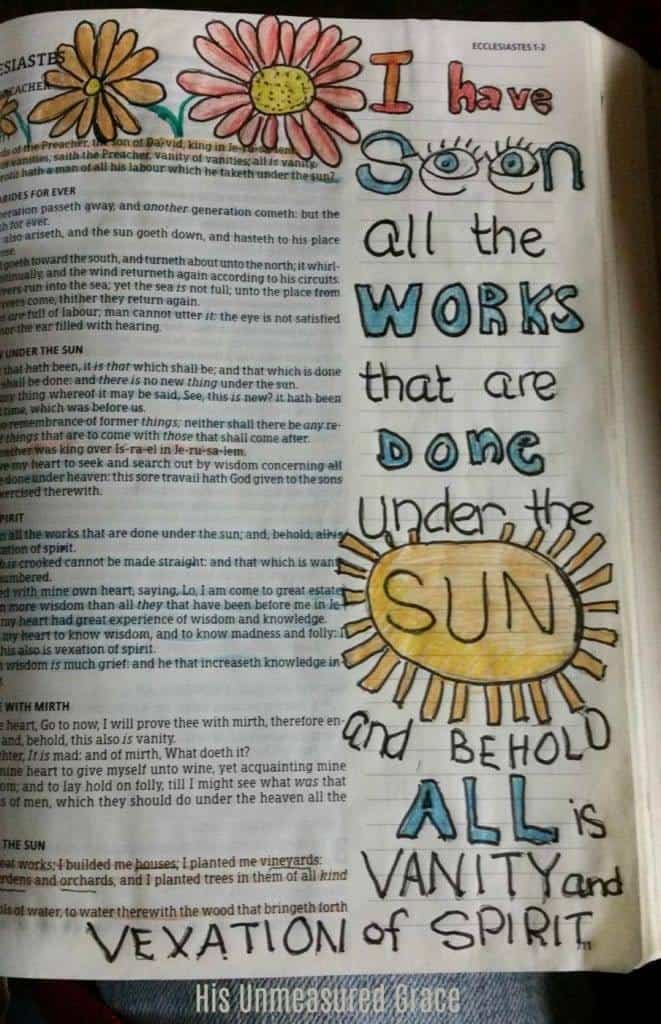 ECCLESIASTES 1-2
of the Preacher, the son of Da-vid, king in Je-ru-sa-lem.
vanities, saith the Preacher, vanity of vanities; all is vanity.
hath a man of all his labour which he taketh under the sun?
ABIDES FOR EVER
passeth away, and another generation cometh: but the
for ever.
also ariseth, and the sun goeth down, and hasteth to his place
goeth toward the south, and turneth about unto the north; it whirl-
continually, and the wind returneth again according to his circuits.
run into the sea; yet the sea is not full; unto the place from
come, thither they return again.
are full of labour; man cannot utter it: the eye is not satisfied
nor the ear filled with hearing.
UNDER THE SUN
that hath been, it is that which shall be; and that which is done
shall be done: and there is no new thing under the sun.
thing whereof it may be said, See, this is new? it hath been
time, which was before us.
remembrance of former things; neither shall there be any re-
things that are to come with those that shall come after.
was king over Is-ra-el in Je-ru-sa-lem.
my heart to seek and search out by wisdom concerning all
done under heaven: this sore travail hath God given to the sons
exercised therewith.
SPIRIT
all the works that are done under the sun; and, behold, all is
of spirit.
is crooked cannot be made straight: and that which is want-
numbered.
with mine own heart, saying, Lo, I am come to great estate,
more wisdom than all they that have been before me in Je-
my heart had great experience of wisdom and knowledge.
my heart to know wisdom, and to know madness and folly: I
this also is vexation of spirit.
wisdom is much grief: and he that increaseth knowledge in-
WITH MIRTH
heart, Go to now, I will prove thee with mirth, therefore en-
and, behold, this also is vanity.
It is mad: and of mirth, What doeth it?
mine heart to give myself unto wine, yet acquainting mine
and to lay hold on folly, till I might see what was that
of men, which they should do under the heaven all the
THE SUN
works; I builded me houses; I planted me vineyards:
and orchards, and I planted trees in them of all kind
of water, to water therewith the wood that bringeth forth
I have
Seen
all the
WORKS
that are
DONE
under the
SUN
and BEHOLD
ALL is
VANITY and
VEXATION of SPIRIT
His Unmeasured Grace